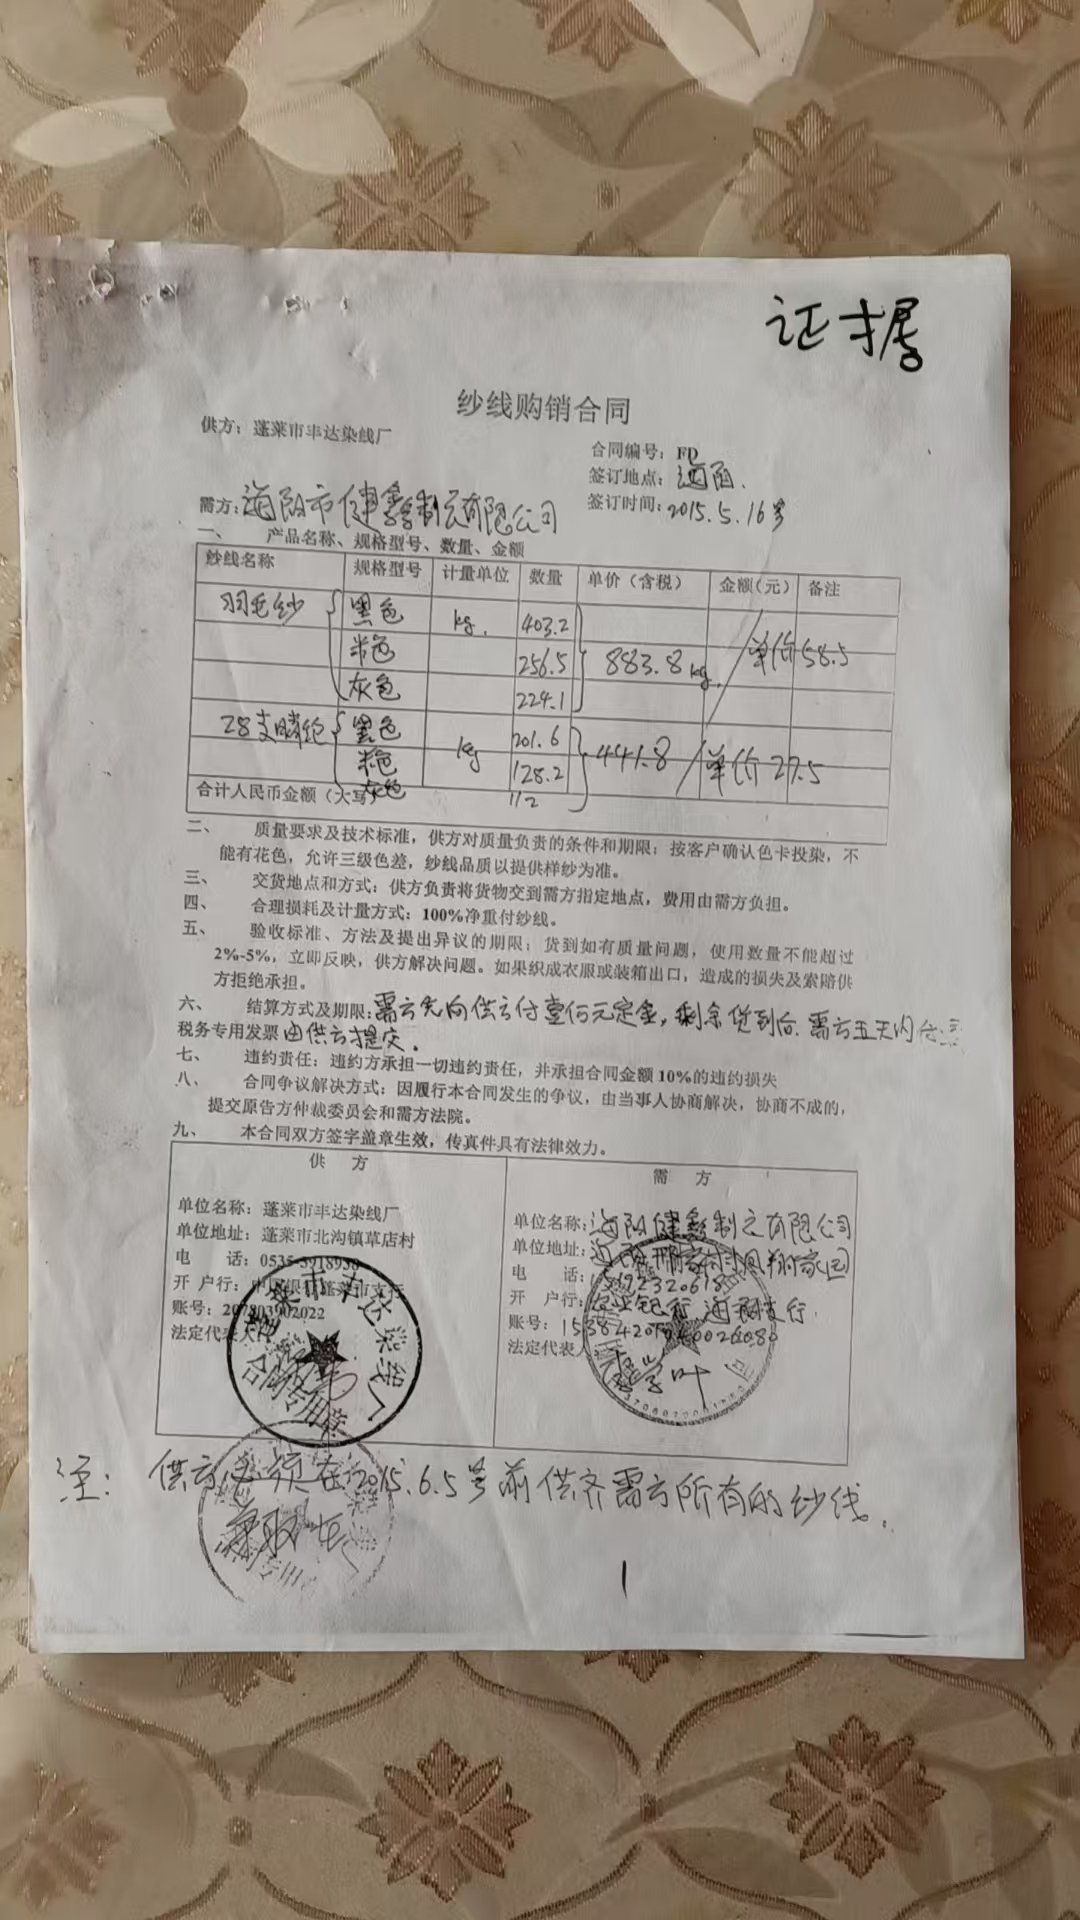 证据
纱线购销合同
供方：蓬莱市丰达染线厂
合同编号：FD
签订地点：海阳.
需方：海阳市健鑫制衣有限公司
签订时间：2015.5.16号
一、 产品名称、规格型号、数量、金额
纱线名称 规格型号 计量单位 数量 单价（含税） 金额（元） 备注
羽毛纱 黑色 kg. 403.2
米色 256.5 883.8kg. 单价58.5
灰色 224.1
28支腈纶 黑色 kg 201.6
米色 128.2 441.8 单价27.5
灰色 112
合计人民币金额（大写）
二、 质量要求及技术标准，供方对质量负责的条件和期限：按客户确认色卡投染，不
能有花色，允许三级色差，纱线品质以提供样纱为准。
三、 交货地点和方式：供方负责将货物交到需方指定地点，费用由需方负担。
四、 合理损耗及计量方式：100%净重付纱线。
五、 验收标准、方法及提出异议的期限；货到如有质量问题，使用数量不能超过
2%-5%，立即反映，供方解决问题。如果织成衣服或装箱出口，造成的损失及索陪供
方拒绝承担。
六、 结算方式及期限：需方先向供方付壹佰元定金，剩余货到后.需方五天内付
税务专用发票由供方提交.
七、 违约责任：违约方承担一切违约责任，并承担合同金额10%的违约损失
八、 合同争议解决方式：因履行本合同发生的争议，由当事人协商解决，协商不成的，
提交原告方仲裁委员会和需方法院。
九、 本合同双方签字盖章生效，传真件具有法律效力。
供 方
单位名称：蓬莱市丰达染线厂
单位地址：蓬莱市北沟镇草店村
电 话：0535-5918958
开 户行：中国银行蓬莱市支行
账号：207803902022
法定代表人
蓬莱市丰达染线厂
合同专用章
需 方
单位名称：海阳健鑫制衣有限公司
单位地址：海阳邢家村凤翔家园
电 话：
开 户行：农业银行海阳支行.
账号：
法定代表人
注：供方必须在2015.6.5号前供齐需方所有的纱线.
1